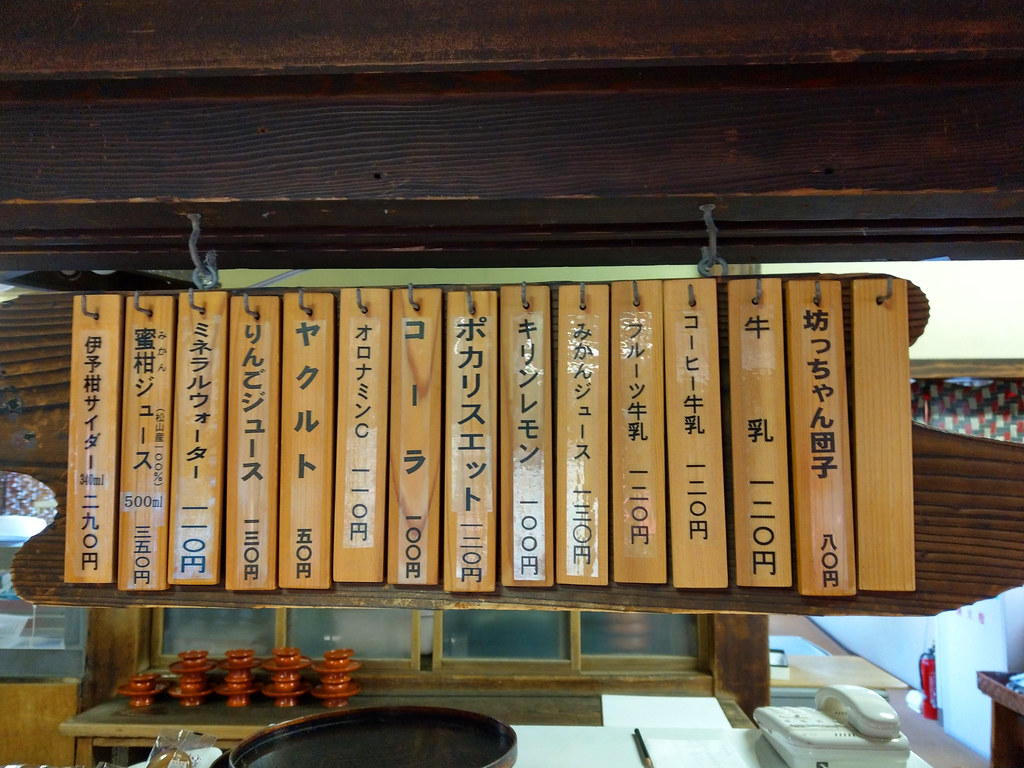 坊っちゃん団子 八〇円
牛乳 一二〇円
コーヒー牛乳 一二〇円
フルーツ牛乳 一二〇円
みかんジュース 一三〇円
キリンレモン 一〇〇円
ポカリスエット 一二〇円
コーラ 一〇〇円
オロナミンC 一一〇円
ヤクルト 五〇円
りんごジュース 一三〇円
ミネラルウォーター 一一〇円
みかん
蜜柑ジュース（松山産一〇〇%）500ml 三五〇円
伊予柑サイダー 340ml 二九〇円